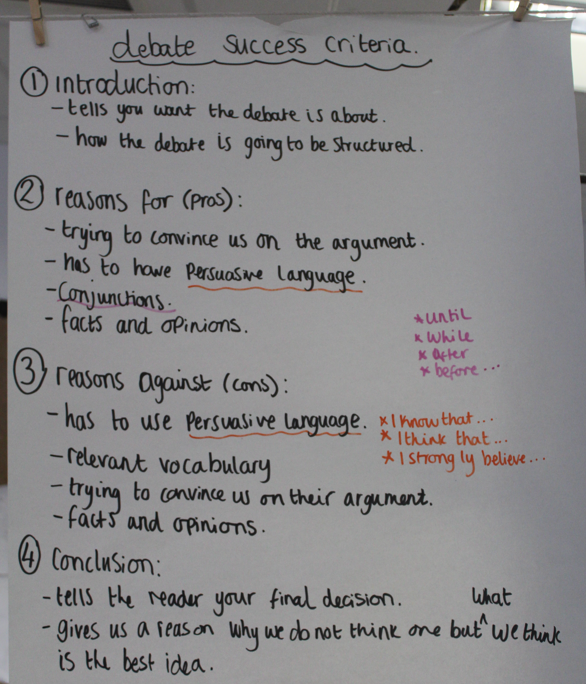 debate success criteria.
① introduction:
- tells you want the debate is about.
- how the debate is going to be structured.
② reasons for (pros):
- trying to convince us on the argument.
- has to have persuasive language.
- Conjunctions.
- facts and opinions.
* until
* while
* after
* before...
③ reasons against (cons):
- has to use persuasive language.
* I know that...
* I think that...
* I strongly believe...
- relevant vocabulary
- trying to convince us on their argument.
- facts and opinions.
④ Conclusion:
- tells the reader your final decision.
- gives us a reason why we do not think one but ^what we think
is the best idea.